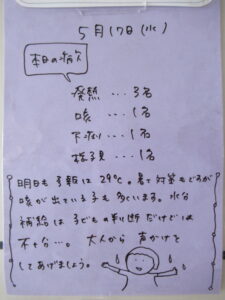 5月17日(水)
本日の病欠
発熱 … 3名
咳 … 1名
下痢 … 1名
様子見 … 1名
明日も予報は29℃。暑さ対策もどうが
咳が出ている子も多くいます。水分
補給は子どもの判断だけでは
不十分…。大人から声かけを
してあげましょう。